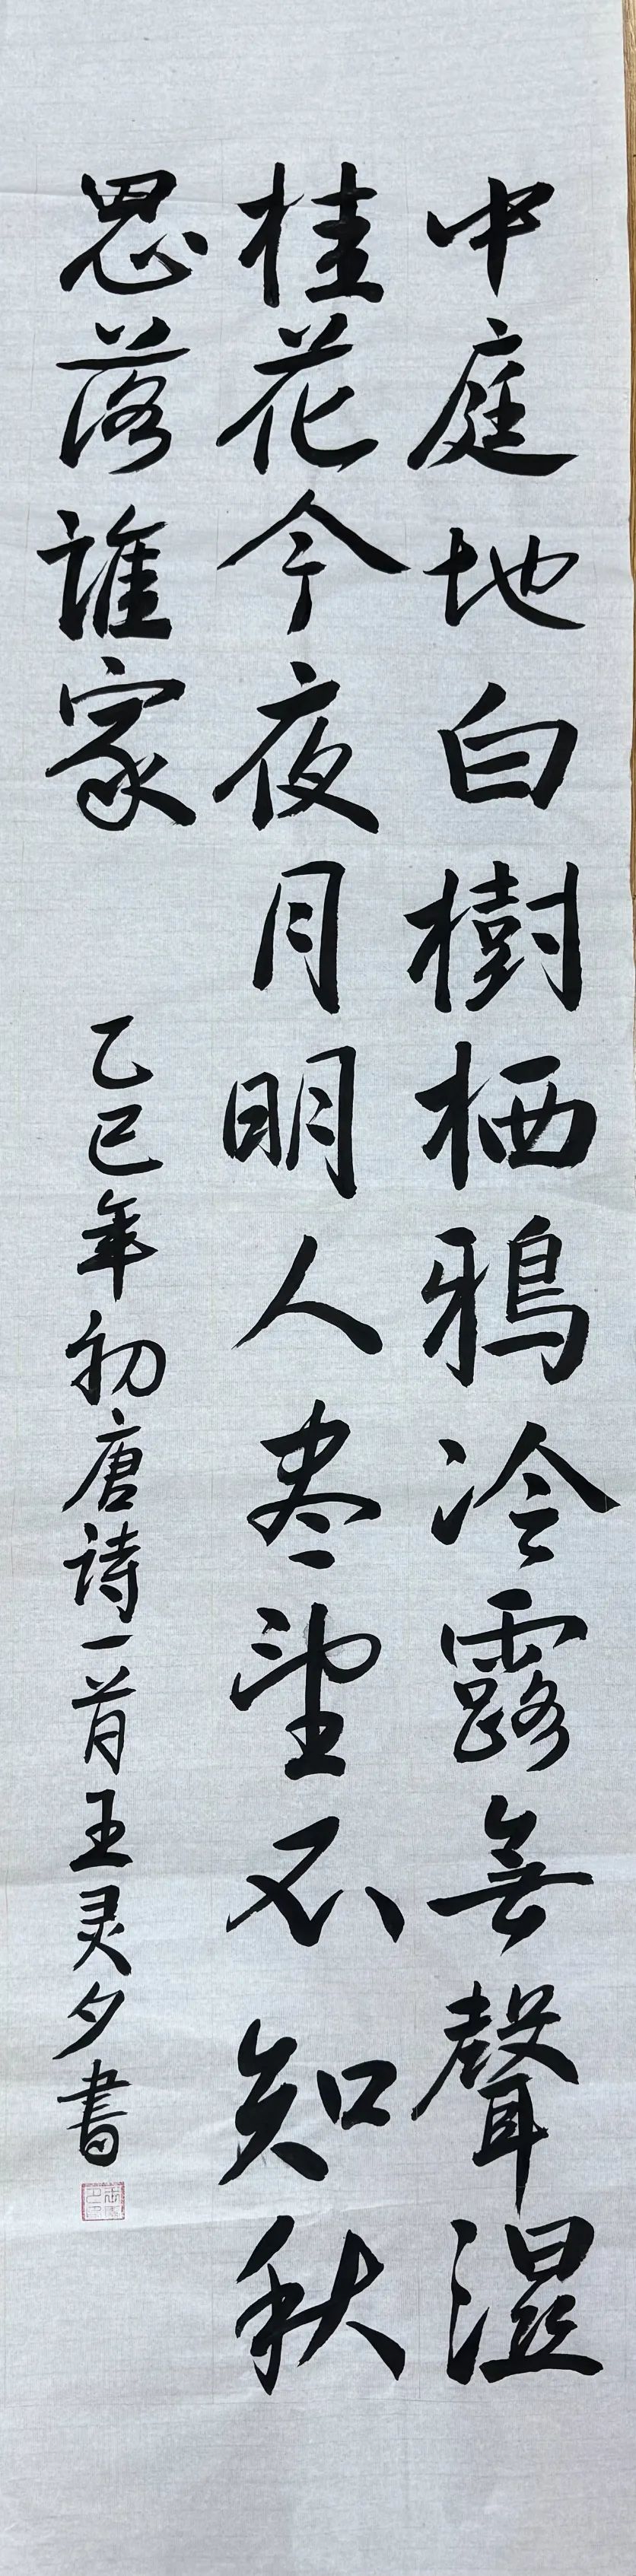 中庭地白樹栖鴉冷露無聲濕
桂花今夜月明人尽望不知秋
思落誰家
乙巳年初唐詩一首王灵夕書